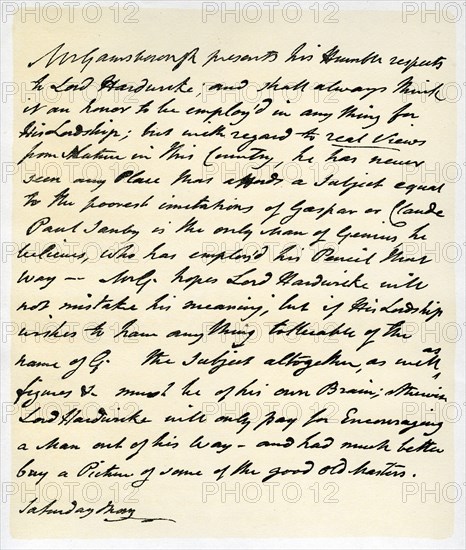 Mr Gainsborough presents his Humble respects
to Lord Hardwicke; and shall always think
it an honor to be employ'd in any thing for
His Lordship; but with regard to real Views
from Nature in this Country, he has never
seen any Place that affords a Subject equal
to the poorest imitations of Gaspar or Claude
Paul Sanby is the only Man of Genius he
believes, who has employ'd his Pencil that
way — Mr G. hopes Lord Hardwicke will
not mistake his meaning, but if His Lordship
wishes to have any thing tollerable of the
name of G. the Subject altogether, as well as
figures &c must be of his own Brain; otherwise
Lord Hardwicke will only pay for Encouraging
a Man out of his way — and had much better
buy a Picture of some of the good old Masters.
Saturday Morg
PHOTO 12